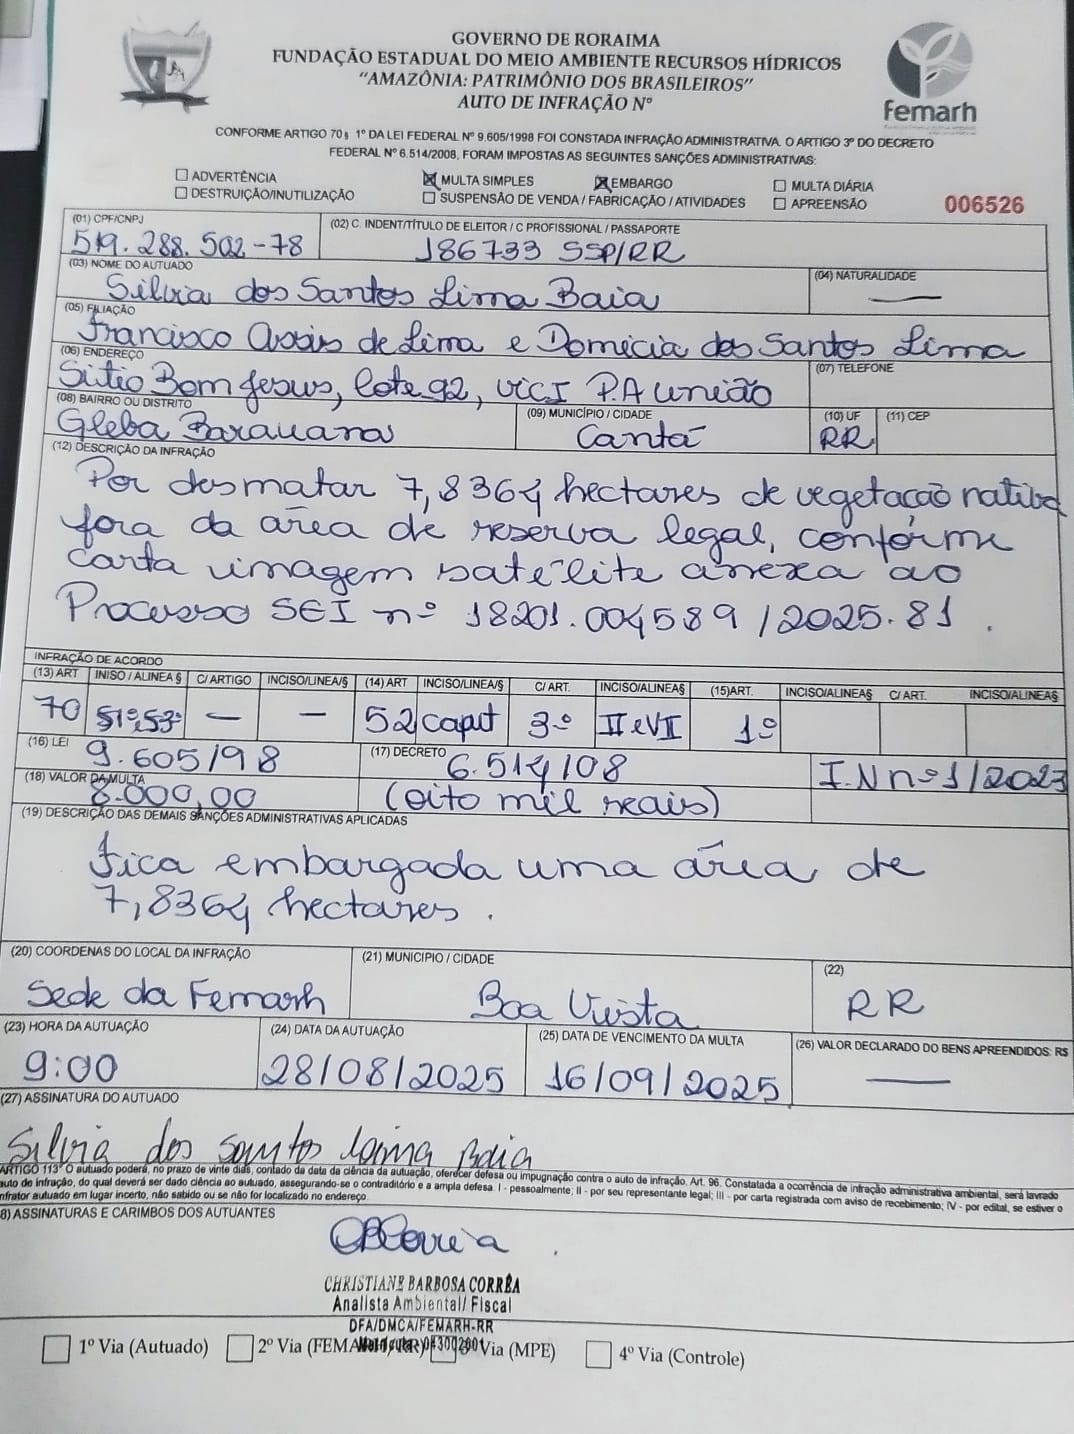 GOVERNO DE RORAIMA
FUNDAÇÃO ESTADUAL DO MEIO AMBIENTE RECURSOS HÍDRICOS
"AMAZÔNIA: PATRIMÔNIO DOS BRASILEIROS"
AUTO DE INFRAÇÃO Nº
femarh
CONFORME ARTIGO 70 § 1º DA LEI FEDERAL Nº 9.605/1998 FOI CONSTADA INFRAÇÃO ADMINISTRATIVA. O ARTIGO 3º DO DECRETO
FEDERAL Nº 6.514/2008, FORAM IMPOSTAS AS SEGUINTES SANÇÕES ADMINISTRATIVAS:
ADVERTÊNCIA MULTA SIMPLES EMBARGO MULTA DIÁRIA
DESTRUIÇÃO/INUTILIZAÇÃO SUSPENSÃO DE VENDA / FABRICAÇÃO / ATIVIDADES APREENSÃO 006526
(01) CPF/CNPJ (02) C. INDENT/TÍTULO DE ELEITOR / C PROFISSIONAL / PASSAPORTE
519.288.502-78 186733 SSP/RR
(03) NOME DO AUTUADO (04) NATURALIDADE
Silvia dos Santos Lima Baia —
(05) FILIAÇÃO
Francisco Assis de Lima e Domicia dos Santos Lima
(06) ENDEREÇO (07) TELEFONE
Sitio Bom Jesus, lote 92, VICI P.A União
(08) BAIRRO OU DISTRITO (09) MUNICÍPIO / CIDADE (10) UF (11) CEP
Gleba Barauana Cantá RR
(12) DESCRIÇÃO DA INFRAÇÃO
Por desmatar 7,8364 hectares de vegetação nativa
fora da área de reserva legal, conforme
carta imagem satélite anexa ao
Processo SEI nº 18201.004589/2025.81.
INFRAÇÃO DE ACORDO
(13) ART INISO / ALINEA § C/ ARTIGO INCISO/LINEA/§ (14) ART INCISO/LINEA/§ C/ ART. INCISO/ALINEA§ (15)ART. INCISO/ALINEA§ C/ ART. INCISO/ALINEA§
70 §1º,§3º — — 52 caput 3º II e VII 1º
(16) LEI (17) DECRETO
9.605/98 6.514/08 I.N nº 1/2023
(18) VALOR DA MULTA
8.000,00 (oito mil reais)
(19) DESCRIÇÃO DAS DEMAIS SANÇÕES ADMINISTRATIVAS APLICADAS
Fica embargada uma área de
7,8364 hectares.
(20) COORDENAS DO LOCAL DA INFRAÇÃO (21) MUNICIPIO / CIDADE (22)
Sede da Femarh Boa Vista RR
(23) HORA DA AUTUAÇÃO (24) DATA DA AUTUAÇÃO (25) DATA DE VENCIMENTO DA MULTA (26) VALOR DECLARADO DO BENS APREENDIDOS: R$
9:00 28/08/2025 16/09/2025 —
(27) ASSINATURA DO AUTUADO
Silvia dos Santos Lima Baia
ARTIGO 113º O autuado poderá, no prazo de vinte dias, contado da data da ciência da autuação, oferecer defesa ou impugnação contra o auto de infração. Art. 96. Constatada a ocorrência de infração administrativa ambiental, será lavrado
auto de infração, do qual deverá ser dado ciência ao autuado, assegurando-se o contraditório e a ampla defesa. I - pessoalmente; II - por seu representante legal; III - por carta registrada com aviso de recebimento; IV - por edital, se estiver o
nfrator autuado em lugar incerto, não sabido ou se não for localizado no endereço.
8) ASSINATURAS E CARIMBOS DOS AUTUANTES
CHRISTIANE BARBOSA CORRÊA
Analista Ambiental/ Fiscal
DFA/DMCA/FEMARH-RR
1º Via (Autuado) 2º Via (FEMARH/RR) Via (MPE) 4º Via (Controle)